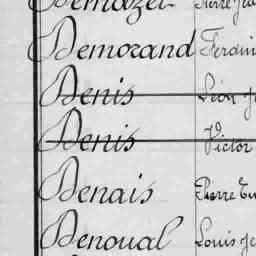 Demazel Pierre
Demorand
Denis Léon
Denis Victor
Denais Pierre
Denoual Louis